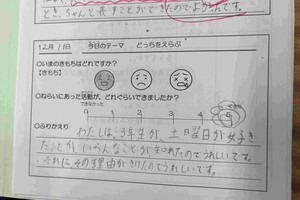 とき、ちゃんと表すことができたのでよかったです。
12月1日 今日のテーマ どっちをえらぶ
○いまのきもちはどれですか?
【きもち】
○ねらいにあった活動が、どれぐらいできましたか?
できなかった
0 1 2 3 4 5
○ふりかえり
わたしは、3年生が、土曜日が好き
だとか、いろんなことが知れたのでうれしいです。
それに、その理由がきけたのでうれしいです。